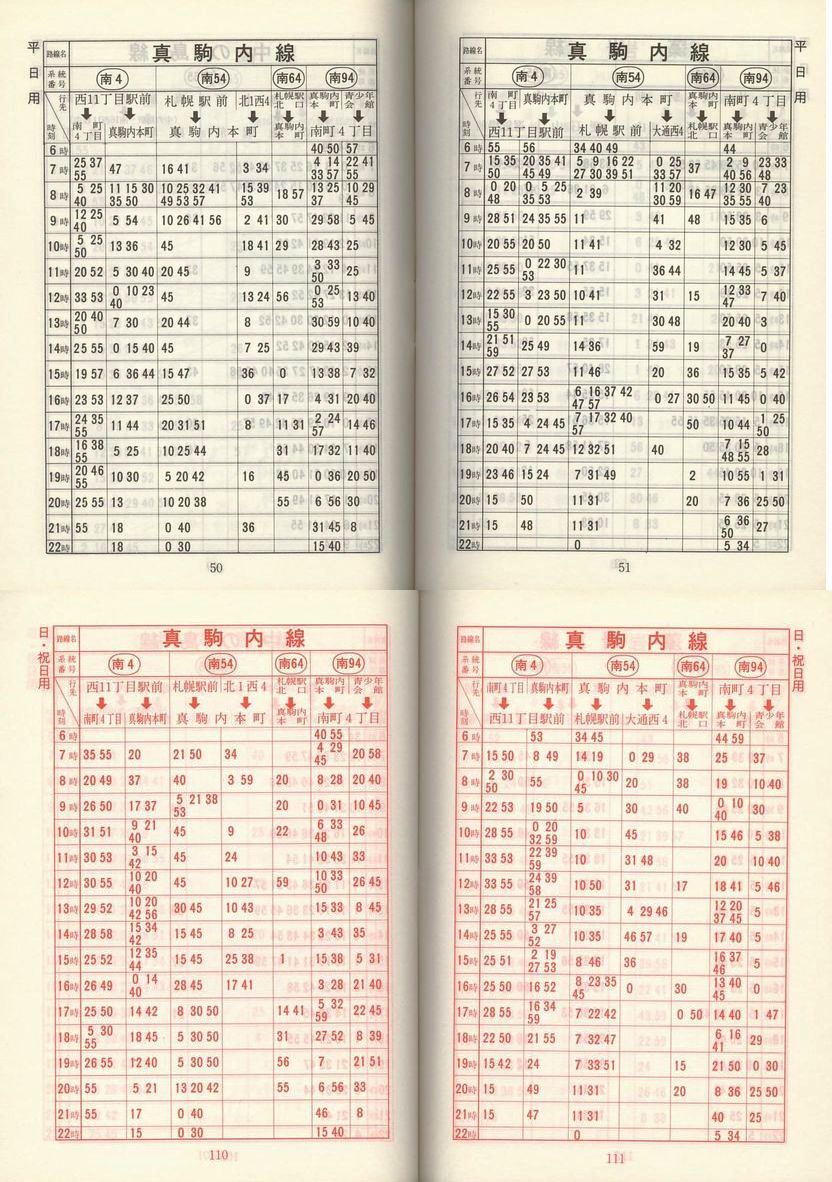 平日用
路線名 真駒内線
系統番号 南4 南54 南64 南94
行先 西11丁目駅前 札幌駅前 北1西4 札幌駅北口 真駒内本町 青少年会館
時刻 南町4丁目 真駒内本町 真駒内本町 真駒内本町 南町4丁目
6時 40 50 57
7時 25 37 55 47 16 41 3 34 4 14 33 57 22 41 55
8時 5 25 40 11 15 30 35 50 10 25 32 41 49 53 57 15 39 53 18 57 13 25 37 10 29 45
9時 12 25 40 5 54 10 26 41 56 2 41 30 29 58 5 45
10時 5 25 50 13 36 45 18 41 29 28 43 25
11時 20 52 5 30 40 20 45 9 3 33 50 25
12時 33 53 0 10 23 40 45 13 24 56 0 25 53 13 40
13時 20 40 50 7 30 20 44 8 30 59 10 40
14時 25 55 0 15 40 45 7 25 29 43 39
15時 19 57 6 36 44 15 47 36 0 13 38 7 32
16時 23 53 12 37 25 50 0 37 17 4 31 20 40
17時 24 35 55 11 44 20 31 51 8 11 31 2 24 57 14 46
18時 16 38 55 5 25 10 25 44 31 17 32 11 40
19時 20 46 55 10 30 5 20 42 16 45 0 36 20 50
20時 25 55 13 10 20 38 55 6 56 30
21時 55 18 0 40 36 31 45 8
22時 18 0 30 15 40
50
平日用
路線名 真駒内線
系統番号 南4 南54 南64 南94
行先 南町4丁目 真駒内本町 真駒内本町 真駒内本町 南町4丁目
時刻 西11丁目駅前 札幌駅前 大通西4 札幌駅北口 真駒内本町 青少年会館
6時 55 56 34 40 49 44
7時 15 35 50 20 35 41 45 49 5 9 16 22 27 30 39 51 0 25 33 57 37 2 9 40 56 23 33 48
8時 0 20 48 0 5 25 35 53 2 39 11 20 30 59 16 47 12 30 35 55 7 23 40
9時 28 51 24 35 55 11 41 48 15 35 6
10時 20 55 20 50 11 41 4 32 12 30 5 45
11時 25 55 0 22 30 53 11 36 44 14 45 5 37
12時 22 55 3 23 50 10 41 31 15 12 33 47 7 40
13時 15 30 55 0 20 55 11 30 48 20 40 3
14時 21 51 59 25 49 14 36 59 19 7 27 37 0
15時 27 52 27 53 11 46 20 36 15 35 5 42
16時 26 54 23 53 6 16 37 42 47 57 0 27 30 50 11 45 0 40
17時 15 35 4 24 45 7 17 32 40 57 50 10 44 1 25 50
18時 20 40 7 24 45 12 32 51 40 7 15 48 55 28
19時 23 46 15 24 7 31 49 2 10 55 1 31
20時 15 50 11 31 20 7 36 25 50
21時 15 48 11 31 6 36 50 27
22時 0 5 34
51
日・祝日用
路線名 真駒内線
系統番号 南4 南54 南64 南94
行先 西11丁目駅前 札幌駅前 北1西4 札幌駅北口 真駒内本町 青少年会館
時刻 南町4丁目 真駒内本町 真駒内本町 真駒内本町 南町4丁目
6時 40 55
7時 35 55 20 21 50 34 4 29 45 20 58
8時 20 49 37 40 3 59 20 8 28 20 40
9時 26 50 17 37 5 21 38 53 20 0 31 10 45
10時 31 51 9 21 40 45 9 22 6 33 48 26
11時 30 53 3 15 42 45 24 10 43 33
12時 30 55 10 20 40 45 10 27 59 10 33 50 26 45
13時 29 52 10 20 42 56 30 45 10 43 15 33 8 45
14時 28 58 15 34 42 15 45 8 25 3 43 35
15時 25 52 12 35 44 15 45 25 38 1 15 38 5 31
16時 26 49 0 14 40 28 45 17 41 3 28 21 40
17時 25 50 14 42 8 30 50 14 41 5 32 59 22 45
18時 5 30 55 18 45 5 30 50 31 27 52 8 39
19時 26 55 12 40 5 30 50 56 7 21 51
20時 55 5 21 13 20 42 55 6 56 33
21時 55 17 0 40 46 8
22時 15 0 30 15 40
110
日・祝日用
路線名 真駒内線
系統番号 南4 南54 南64 南94
行先 南町4丁目 真駒内本町 真駒内本町 真駒内本町 南町4丁目
時刻 西11丁目駅前 札幌駅前 大通西4 札幌駅北口 真駒内本町 青少年会館
6時 53 34 45 44 59
7時 15 50 8 49 14 19 0 29 38 25 37
8時 2 30 50 55 0 10 30 45 20 38 19 10 40
9時 22 53 19 50 5 30 40 0 10 40 30
10時 28 55 0 20 32 59 10 45 15 46 5 38
11時 33 53 22 39 59 10 31 48 20 10 40
12時 33 55 24 39 58 10 50 31 17 18 41 5 46
13時 28 55 21 25 57 10 35 4 29 46 12 20 37 45 5
14時 25 55 3 27 52 10 35 46 57 19 17 40 5
15時 25 51 2 19 27 53 8 46 36 16 37 46 5
16時 25 50 16 52 8 23 35 45 0 30 13 40 45 0
17時 28 55 16 34 59 7 22 42 0 50 14 40 1 47
18時 22 50 21 55 7 32 47 6 16 41 29
19時 15 42 24 7 33 51 15 21 50 0 30
20時 15 49 11 31 20 8 36 25 50
21時 15 47 11 31 40 25
22時 0 5 34
111